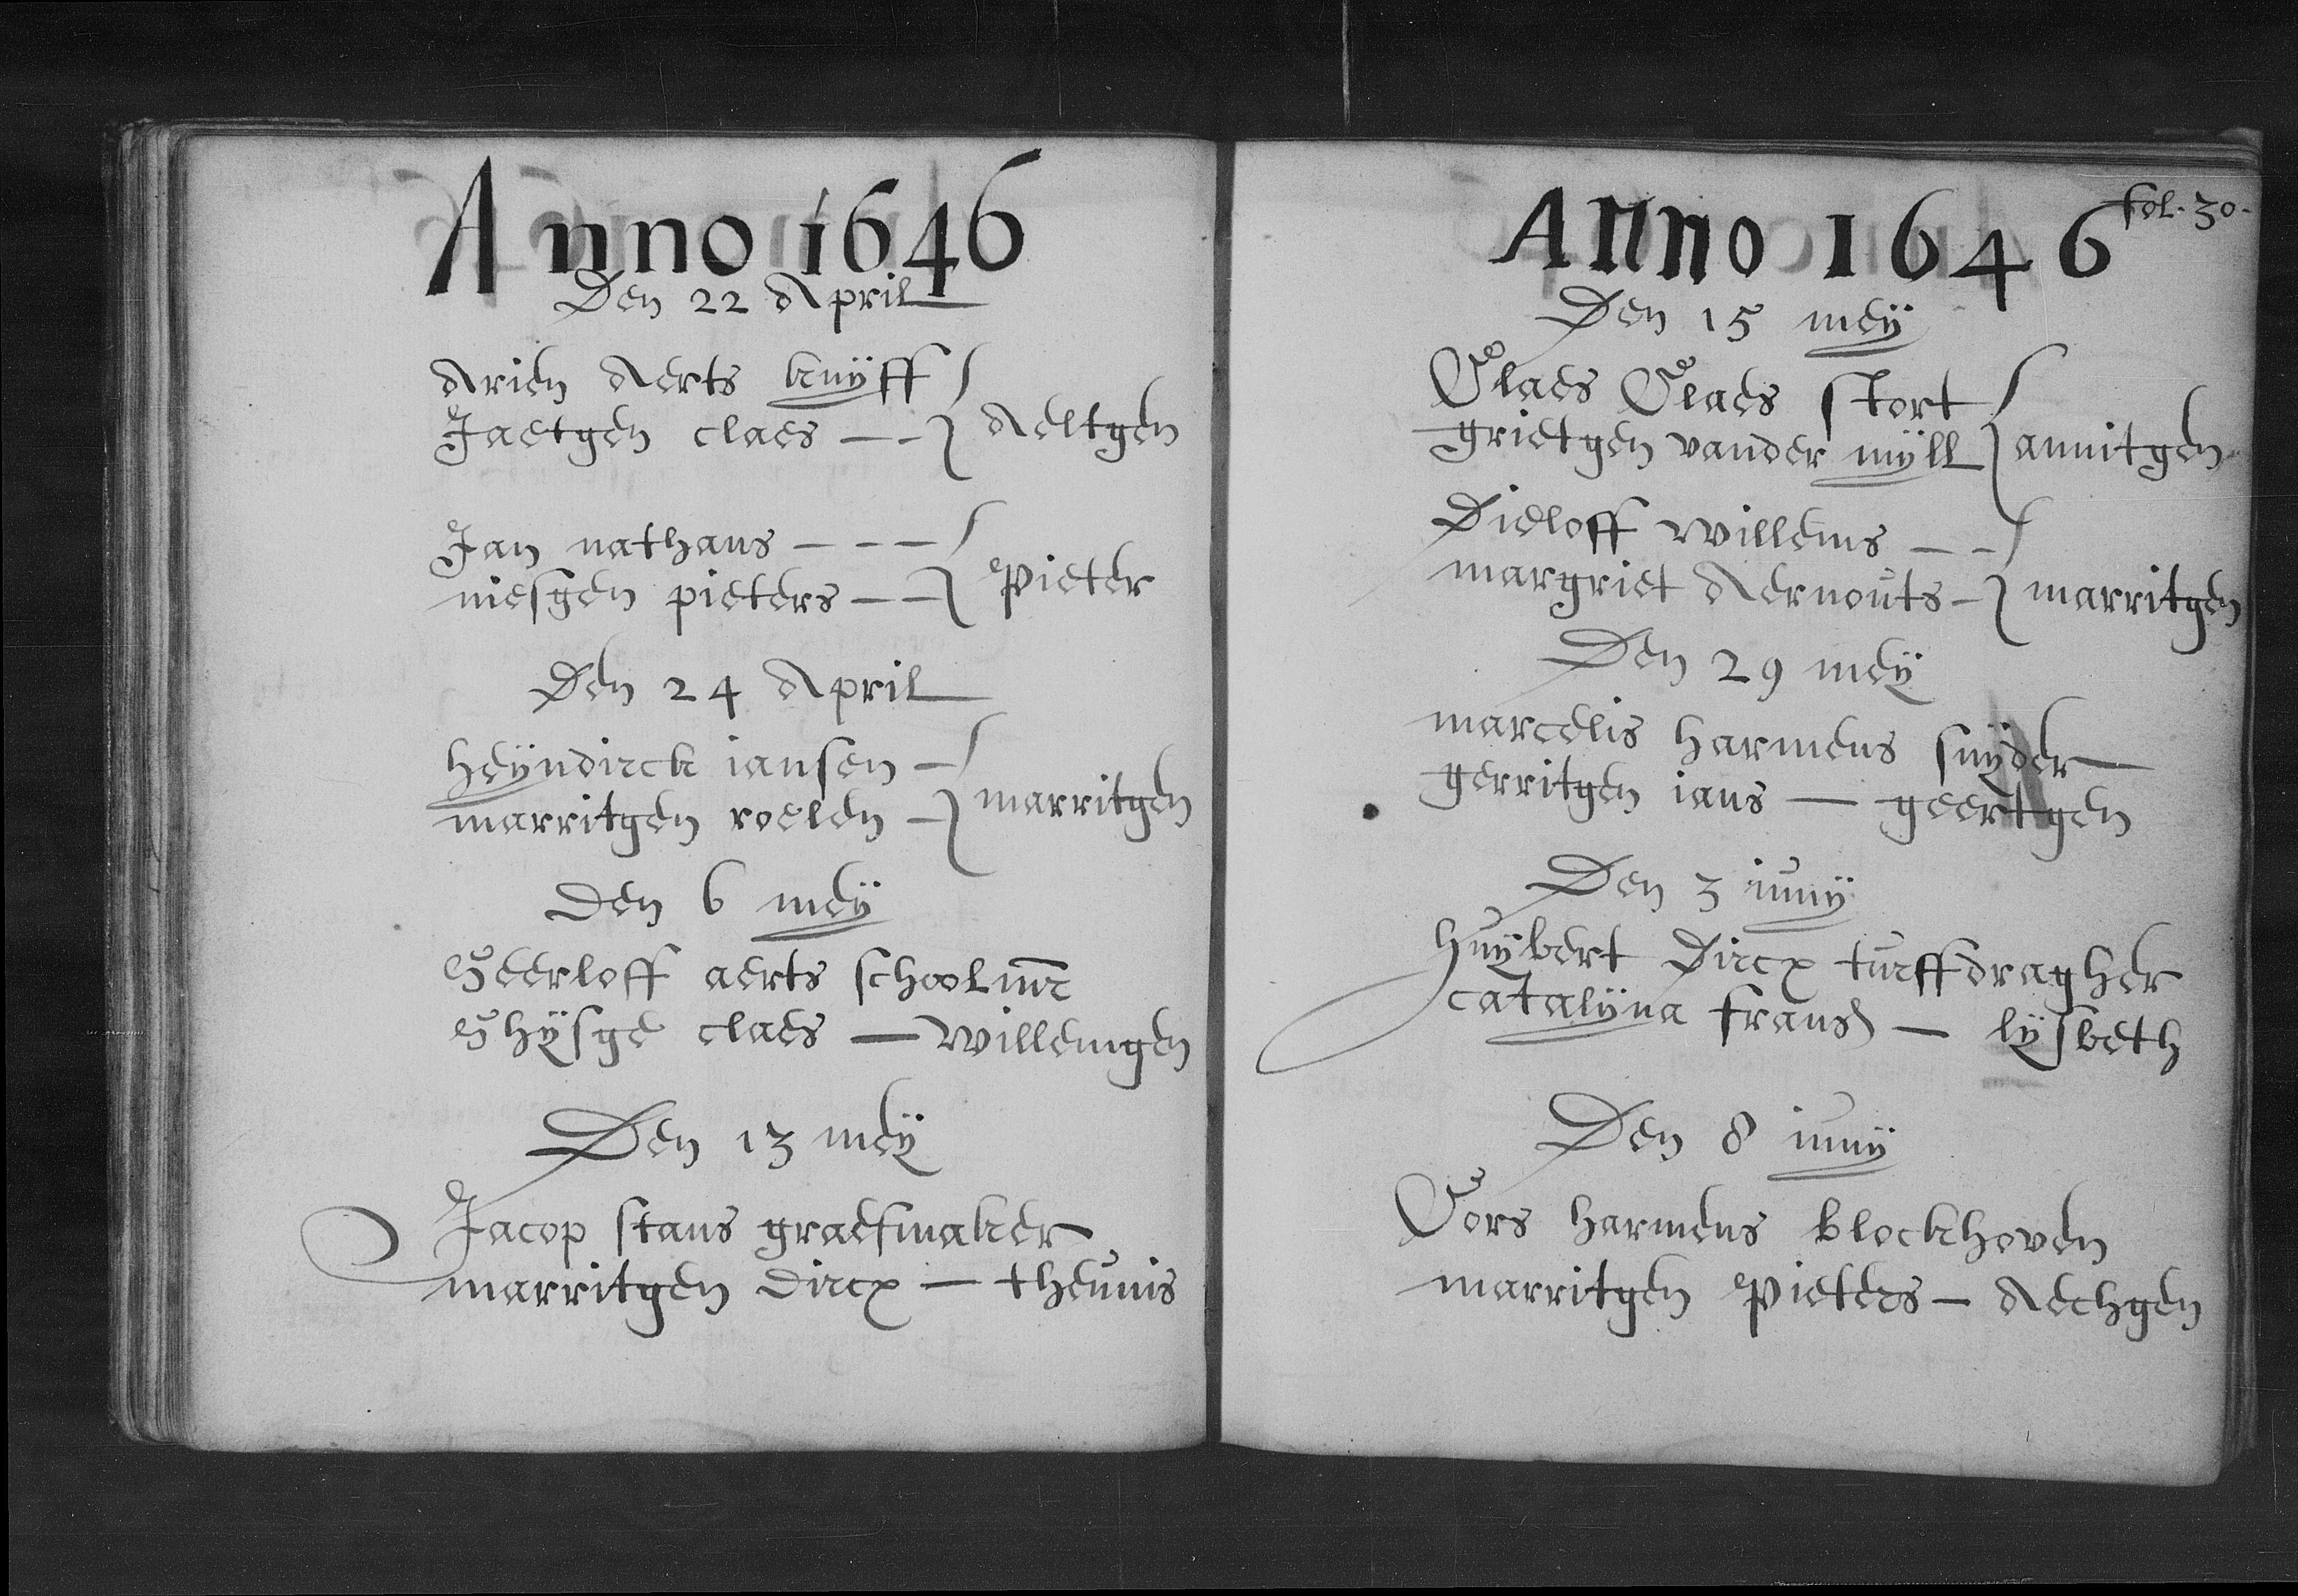 Anno 1646
Den 22 April
Arien Aerts knÿff
Jaetgen claes — - } Aeltgen
Jan nathans - - -
niesgen pieters - - } Pieter
Den 24 April
heÿndirck iansen -
marritgen roelen - } marritgen
Den 6 meÿ
Geerloff aerts schoolmr
Ghÿsge claes — willemgen
Den 13 meÿ
Jacop stans graefmaker
marritgen Dircx — theunis
fol. 30.
Anno 1646
Den 15 meÿ
Claes Claes stort
grietgen vander mÿll } annitgen
Dieloff willems - -
margriet Aernouts - } marritgen
Den 29 meÿ
marcelis harmens snÿder
gerritgen ians — geertgen
Den 3 iunÿ
huÿbert Dircx turffdragher
catalÿna frans — lÿsbeth
Den 8 iunÿ
Cors harmens blockhoven
marritgen Pieters — Aechgen